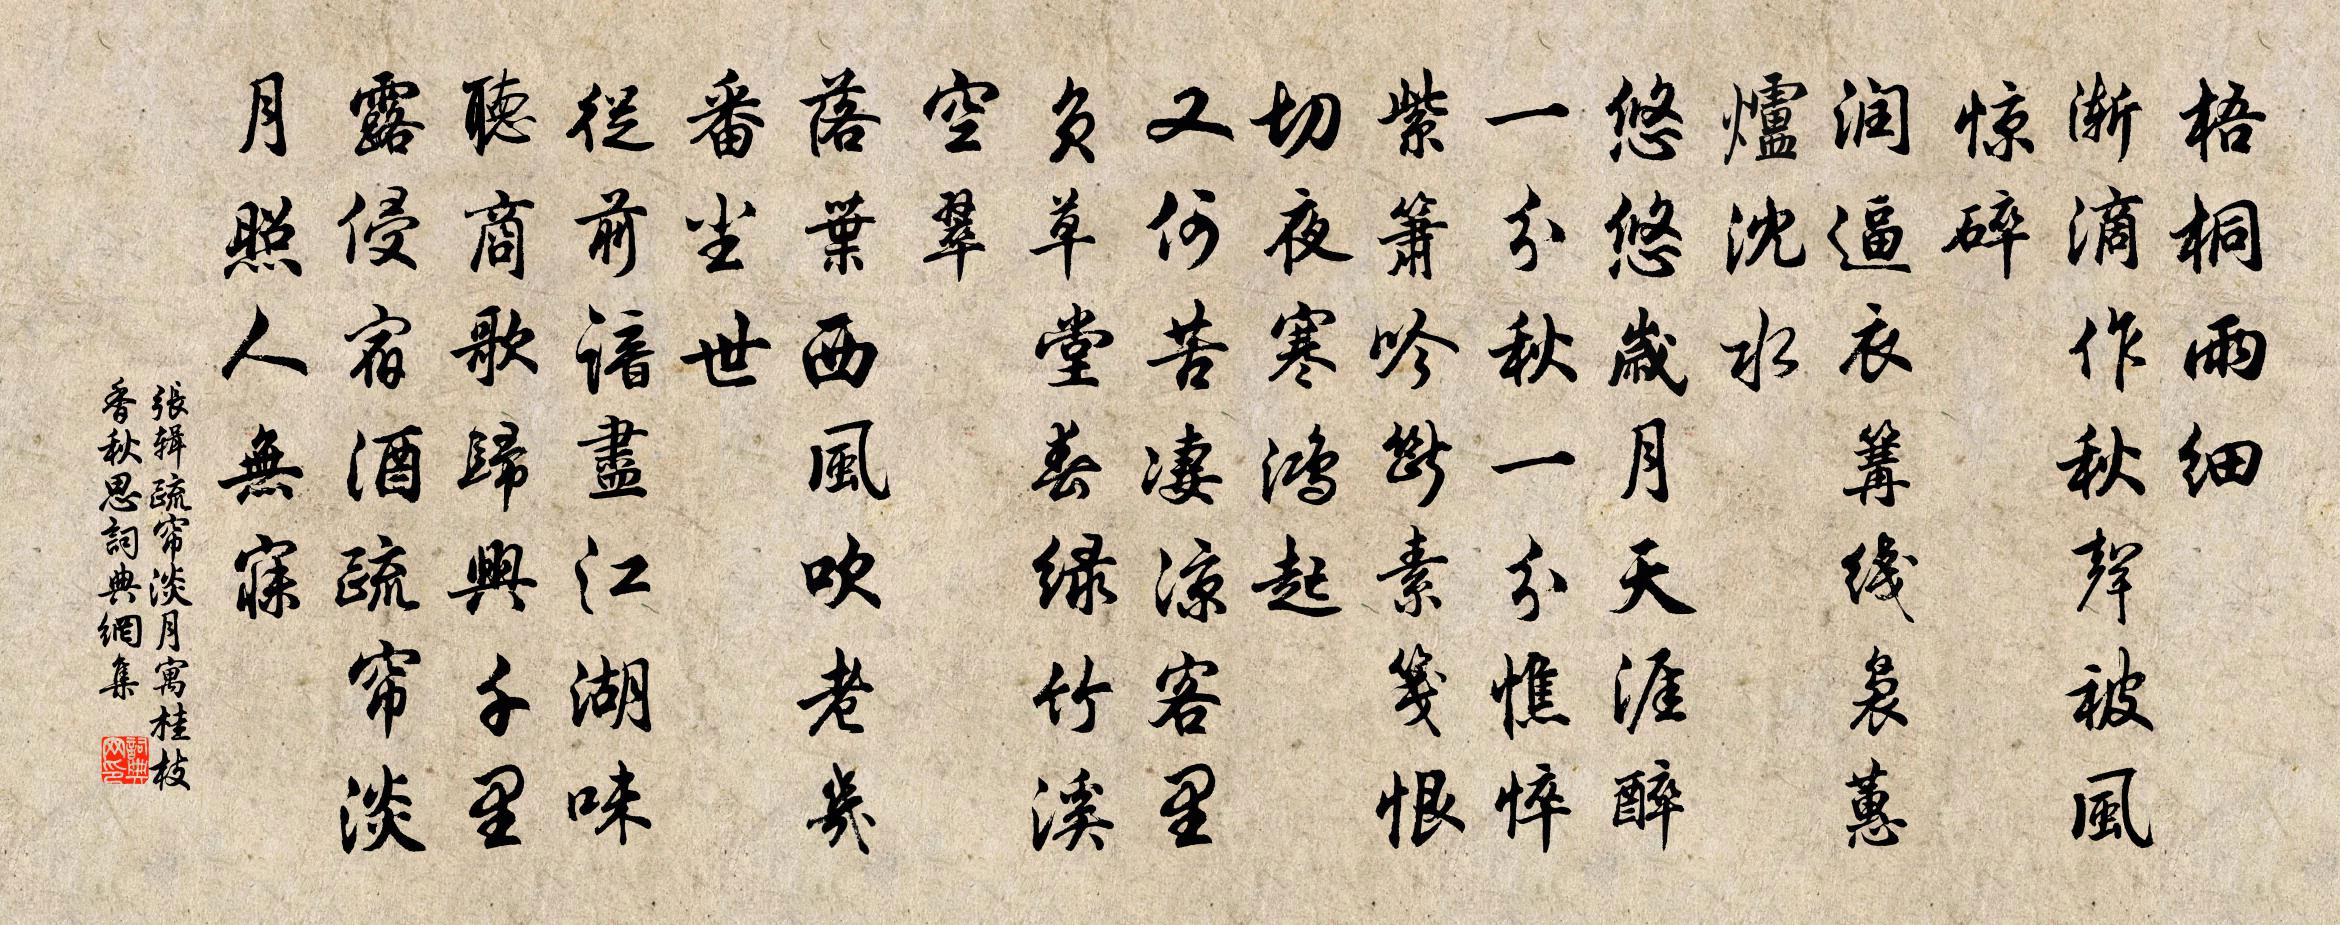 梧桐雨細
漸滴作秋聲被風
惊碎
润逼衣篝綫裊蕙
爐沈水
悠悠歲月天涯醉
一分秋一分憔悴
紫簫吟斷素箋恨
切夜寒鴻起
又何苦凄涼客里
負草堂春绿竹溪
空翠
落葉西風吹老幾
番尘世
從前諳盡江湖味
聽商歌歸興千里
露侵宿酒疏帘淡
月照人無寐
張辑疏帘淡月寓桂枝
香秋思詞典網集
詞典网印